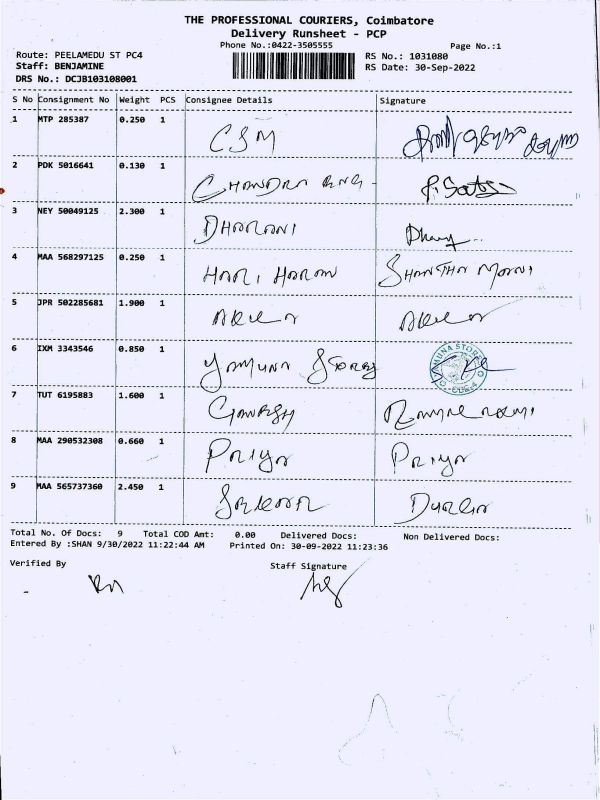 THE PROFESSIONAL COURIERS, Coimbatore
Delivery Runsheet - PCP
Phone No.:0422-3505555
Page No.:1
Route: PEELAMEDU ST PC4
Staff: BENJAMINE
DRS No.: DCJB103108001
RS No.: 1031080
RS Date: 30-Sep-2022
S No Consignment No Weight PCS Consignee Details Signature
1 MTP 285387 0.250 1 CSM
2 PDK 5016641 0.130 1 CHANDRA P.Sats
3 NEY 50049125 2.300 1 DHARANI
4 MAA 568297125 0.250 1 HARI HARAN SHANTHA MANI
5 JPR 502285681 1.900 1
6 IXM 3343546 0.850 1 YAMUNA STORES
7 TUT 6195883 1.600 1 GANESH
8 MAA 290532308 0.660 1 PRIYA PRIYA
9 MAA 565737360 2.450 1
Total No. Of Docs: 9 Total COD Amt: 0.00 Delivered Docs: Non Delivered Docs:
Entered By :SHAN 9/30/2022 11:22:44 AM Printed On: 30-09-2022 11:23:36
Verified By Staff Signature